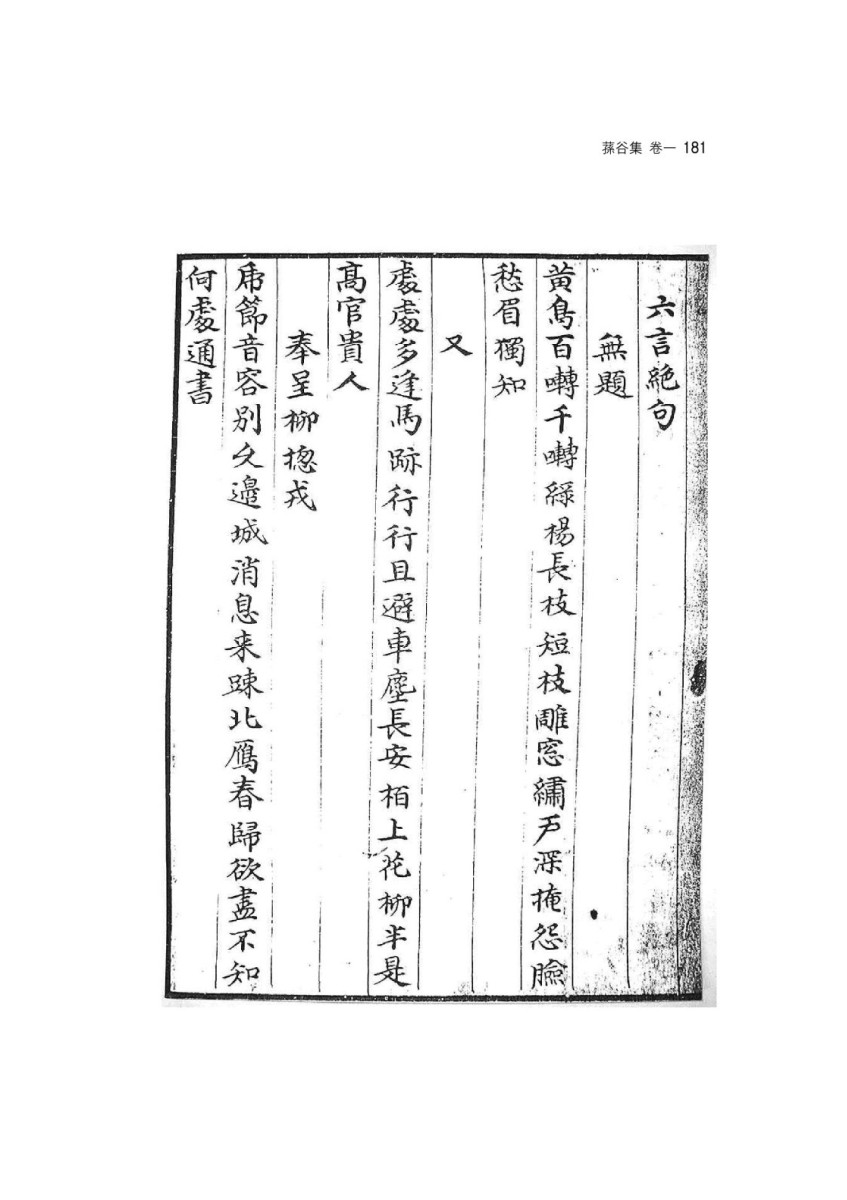 蓀谷集 卷一 181
六言絶句
無題
黃鳥百囀千囀綠楊長枝短枝雕窓繡戶深掩怨臉
愁眉獨知
又
處處多逢馬跡行行且避車塵長安栢上花柳半是
高官貴人
奉呈柳摠戎
帍節音容別久邊城消息来踈北鴈春歸欲盡不知
何處通書